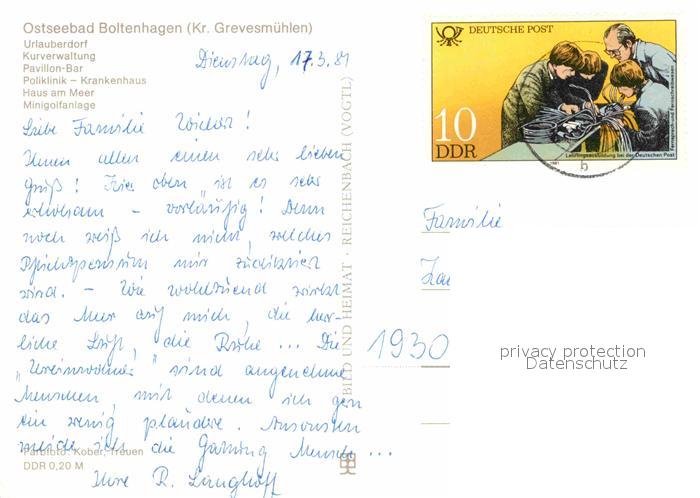 Ostseebad Boltenhagen (Kr. Grevesmühlen)
Urlauberdorf
Kurverwaltung
Pavillon-Bar
Poliklinik – Krankenhaus
Haus am Meer
Minigolfanlage
Dienstag, 17.3.81
Liebe Familie !
Ihnen allen einen sehr lieben
Gruß! Hier oben ist es sehr
erholsam – vorläufig! Denn
noch weiß ich nicht, welches
Pflichtpensum mir zudiktiert
wird. – Wie wohltuend wirkt
das Meer auf mich, die herr-
liche Luft, die Ruhe ... Die
"Ureinwohner" sind angenehme
Menschen, mit denen ich gern
ein wenig plaudere. Ansonsten
meide ich die Gattung Mensch ...
Ihre R. Langhoff
Farbfoto: Kober, Treuen
DDR 0,20 M
BILD UND HEIMAT · REICHENBACH (VOGTL)
DEUTSCHE POST
10
DDR
Lehrlingsausbildung bei der Deutschen Post
Fernsprech- und Fernschreibwesen
1981
b
Familie
1930
privacy protection
Datenschutz